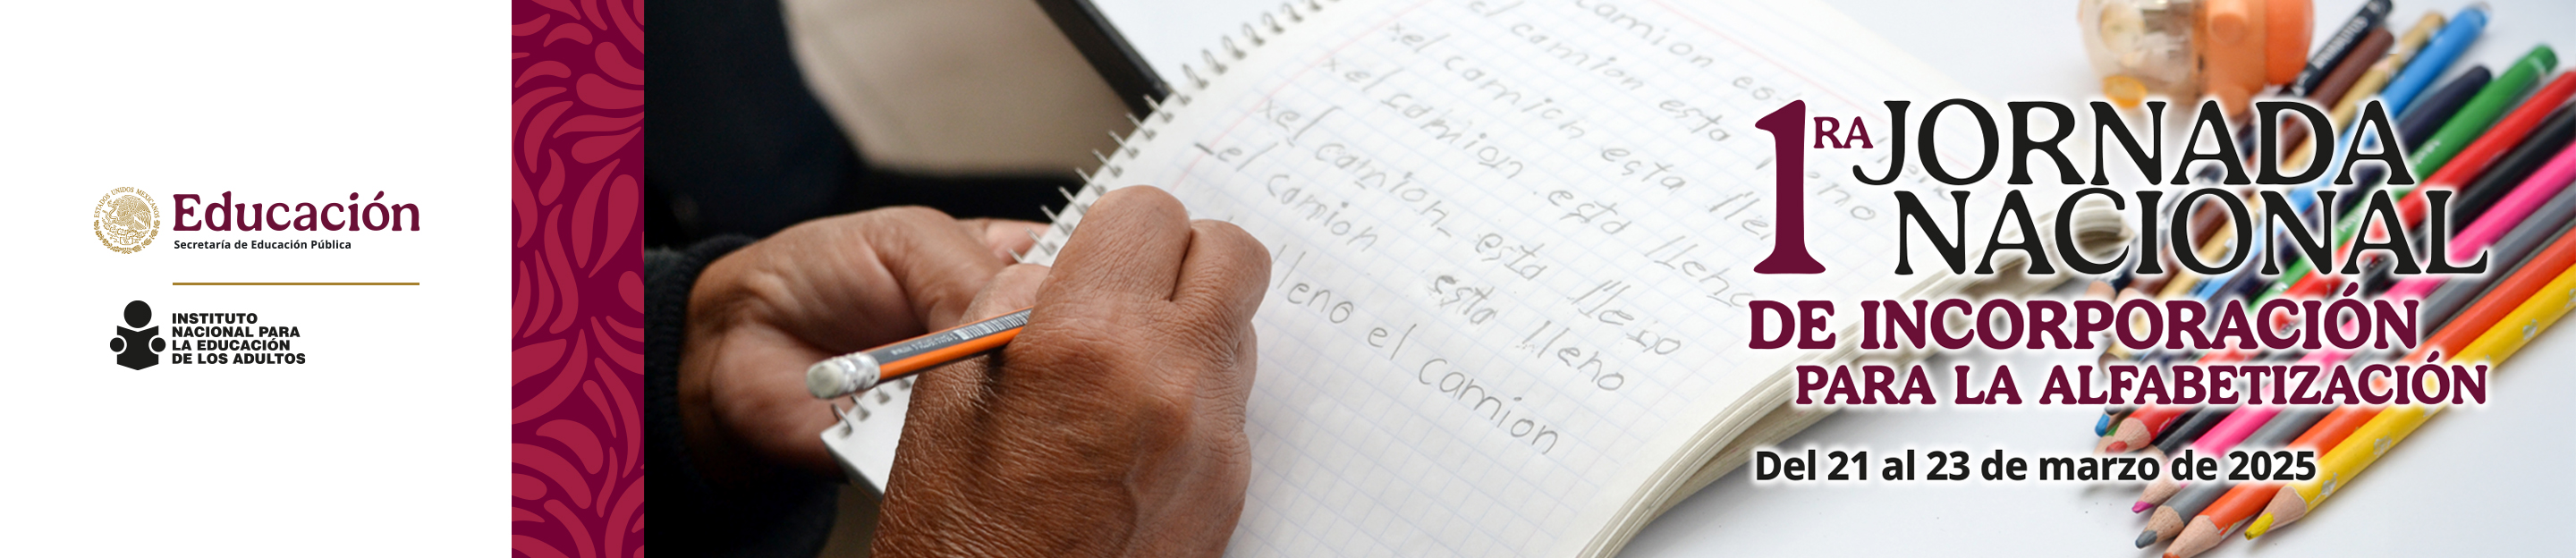 ESTADOS UNIDOS MEXICANOS
Educación
Secretaría de Educación Pública
INSTITUTO
NACIONAL PARA
LA EDUCACIÓN
DE LOS ADULTOS
camion es
el camion esta lleno
xel camion esta lle
xel camion esta lleno
xel camion esta lleno
-el camion esta lleno
lleno el camion
1RA JORNADA
NACIONAL
DE INCORPORACIÓN
PARA LA ALFABETIZACIÓN
Del 21 al 23 de marzo de 2025